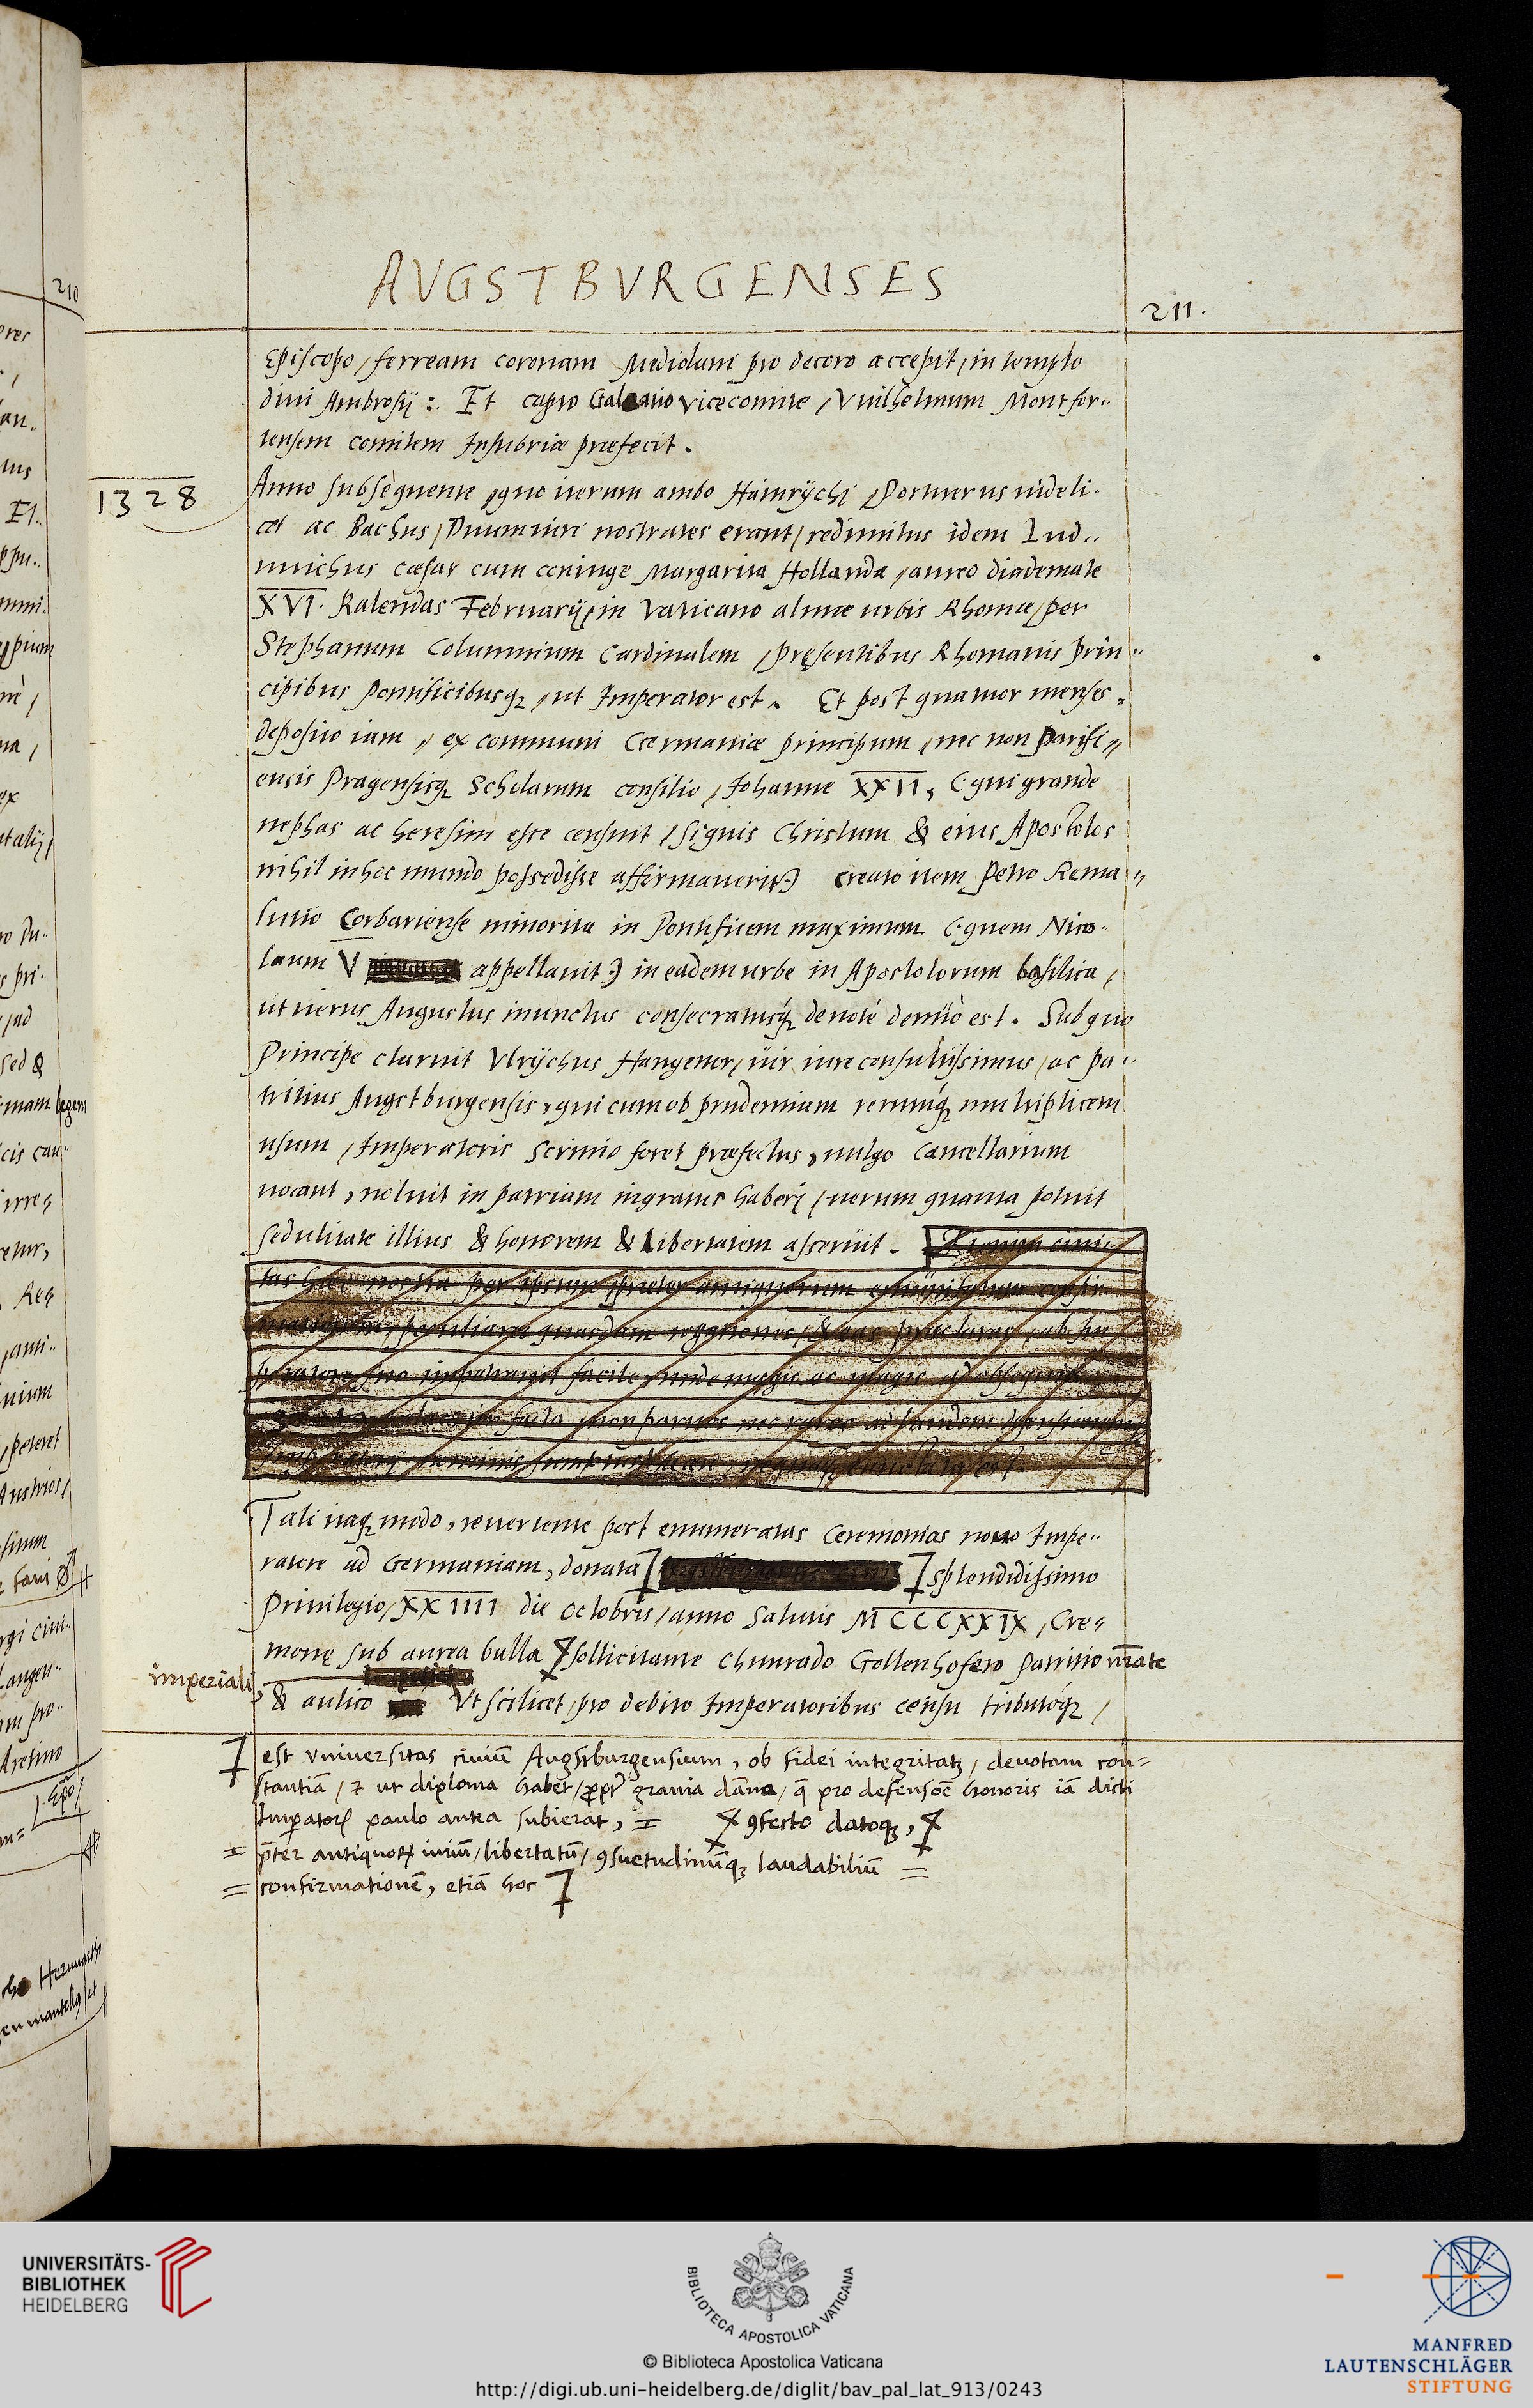 AVGSTBVRGENSES
211.
Episcopo, ferream coronam Mediolani pro decoro accepit, in templo
diui Ambrosij :. Et capto Galeatio vicecomite, Vuilhelmum Montfor..
tensem comitem Insubriæ præfecit.
1328
Anno subsèquente, quo iterum ambo Hainrychi, Portnerus uideli.
cet ac Bachus, Duumuiri nostrates erant, redimitus idem Lud..
uuichus cæsar cum coniuge Margarita Hollanda, aureo diademate
XVI. Kalendas Februarij, in Vaticano almæ urbis Rhomæ, per
Stephanum Columnium Cardinalem, pręsentibus Rhomanis Prin..
cipibus Pontificibusq3, ut Imperator est. Et post quatuor menses,
deposito iam, ex communi Germaniæ principum, nec non Parisi,,
ensis Pragensisq3 Scholarum consilio, Iohanne XXII, (: qui grande
nephas ac heresim esse censuit, siquis Christum & eius Apostolos
nihil in hoc mundo possedisse affirmauerit:) creato item Petro Rema,,
lutio Corbariense minorita in Pontificem maximum (: quem Nico..
laum V appellauit:) in eadem urbe in Apostolorum basilica,
ut uerus Augustus inunctus consecratusq́3 deuotè denuò est. Sub quo
Principe claruit Vlrychus Hangenor, uir iure consultissimus, ac pa..
tritius Augstburgensis, qui cum ob prudentiam rerumq́3 multiplicem
usum, Imperatoris Scrinio foret præfectus, uulgo Cancellarium
uocant, noluit in patriam ingratus haberi, uerum quanta potuit
sedulitate illius & honorem & Libertatem asseruit.
Tali itaq3 modo, reuertente post enumeratas Ceremonias nouo Impe..
ratore ad Germaniam, donata splendidissimo
Priuilegio, XXIIII die Octobris, anno Salutis MCCCXXIX, Cre,
monę sub aurea bulla sollicitante Chunrado Gollenhofero Patritio nr̄ate
imperiali,
& aulico Vt scilicet, pro debito Imperatoribus censu tributóq3,
est vniuersitas ciuiū Augstburgensium, ob fidei integritatē, deuotam con=
stantiā, & ut diploma habet, ꝓpt̄ grauia dāna, q̄ pro defensōe honoris iā dicti
Imꝑatorꝭ paulo antea subierat, = ꝯfecto datoq3,
= p̄ter antiquoꝝ iuriū, libertatū, ꝯsuetudinūq3 laudabiliū =
= confirmationē, etiā hoc
UNIVERSITÄTS-
BIBLIOTHEK
HEIDELBERG
BIBLIOTECA APOSTOLICA VATICANA
© Biblioteca Apostolica Vaticana
http://digi.ub.uni-heidelberg.de/diglit/bav_pal_lat_913/0243
MANFRED
LAUTENSCHLÄGER
STIFTUNG